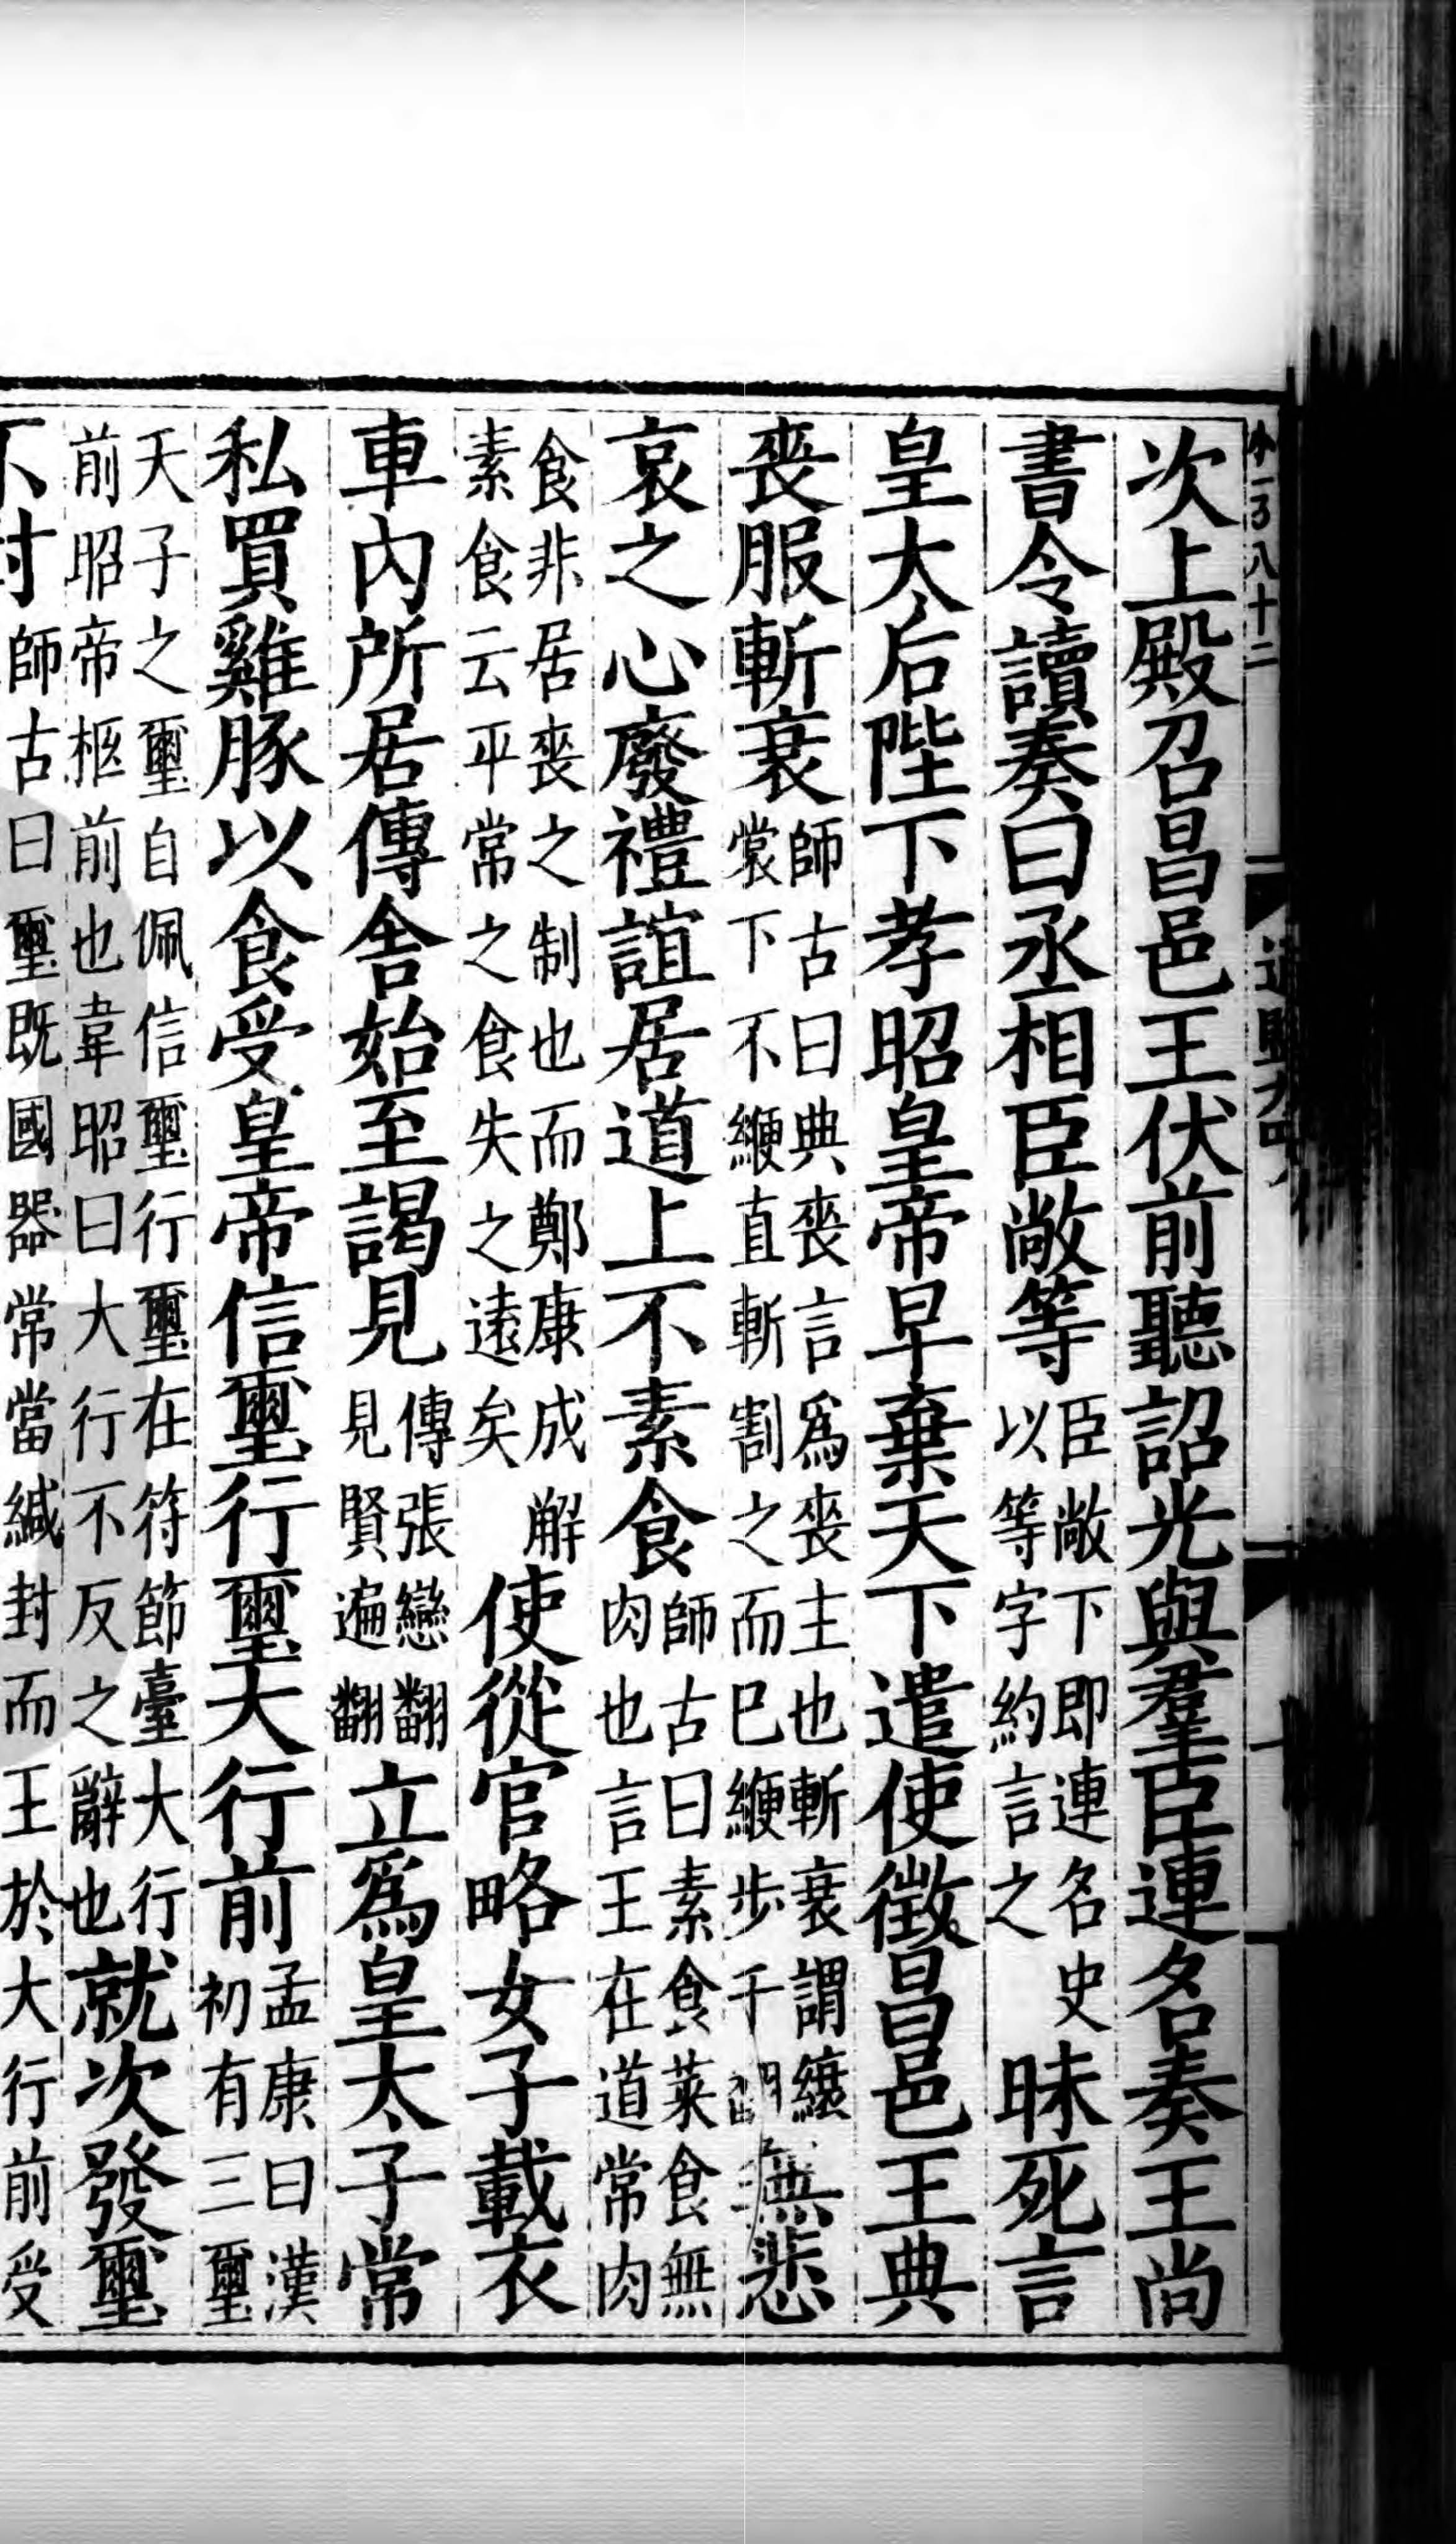 小一百八十二
次上殿召昌邑王伏前聽詔光與羣臣連名奏王尚
書令讀奏曰丞相臣敞等臣敞下即連名史以等字約言之昧死言
皇太后陛下孝昭皇帝早棄天下遣使徵昌邑王典
喪服斬衰師古曰典喪言爲喪主也斬衰謂縗裳下不緶直斬割之而已緶步千翻無悲
哀之心廢禮誼居道上不素食師古曰素食菜食無肉也言王在道常肉
食非居喪之制也而鄭康成解素食云平常之食失之遠矣使從官略女子載衣
車內所居傳舍始至謁見傳張戀翻見賢遍翻立爲皇太子常
私買雞豚以食受皇帝信璽行璽大行前孟康曰漢初有三璽
天子之璽自佩信璽行璽在符節臺大行前昭帝柩前也韋昭曰大行不反之辭也就次發璽
不封師古曰璽既國器常當緘封而王於大行前受